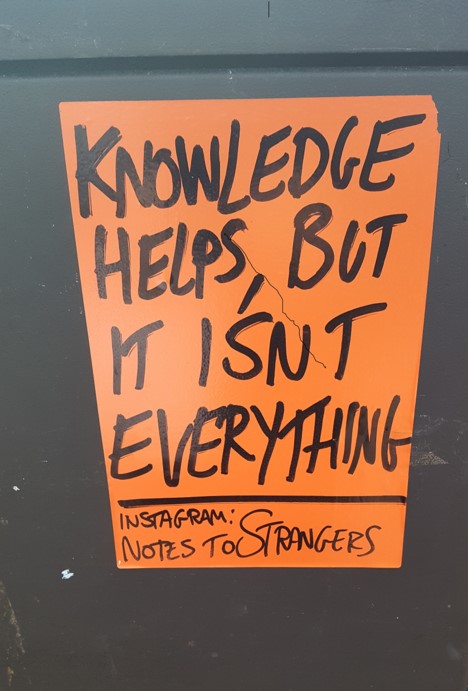 KNOWLEDGE
HELPS, BUT
IT ISN'T
EVERYTHING
INSTAGRAM:
NOTES TO STRANGERS